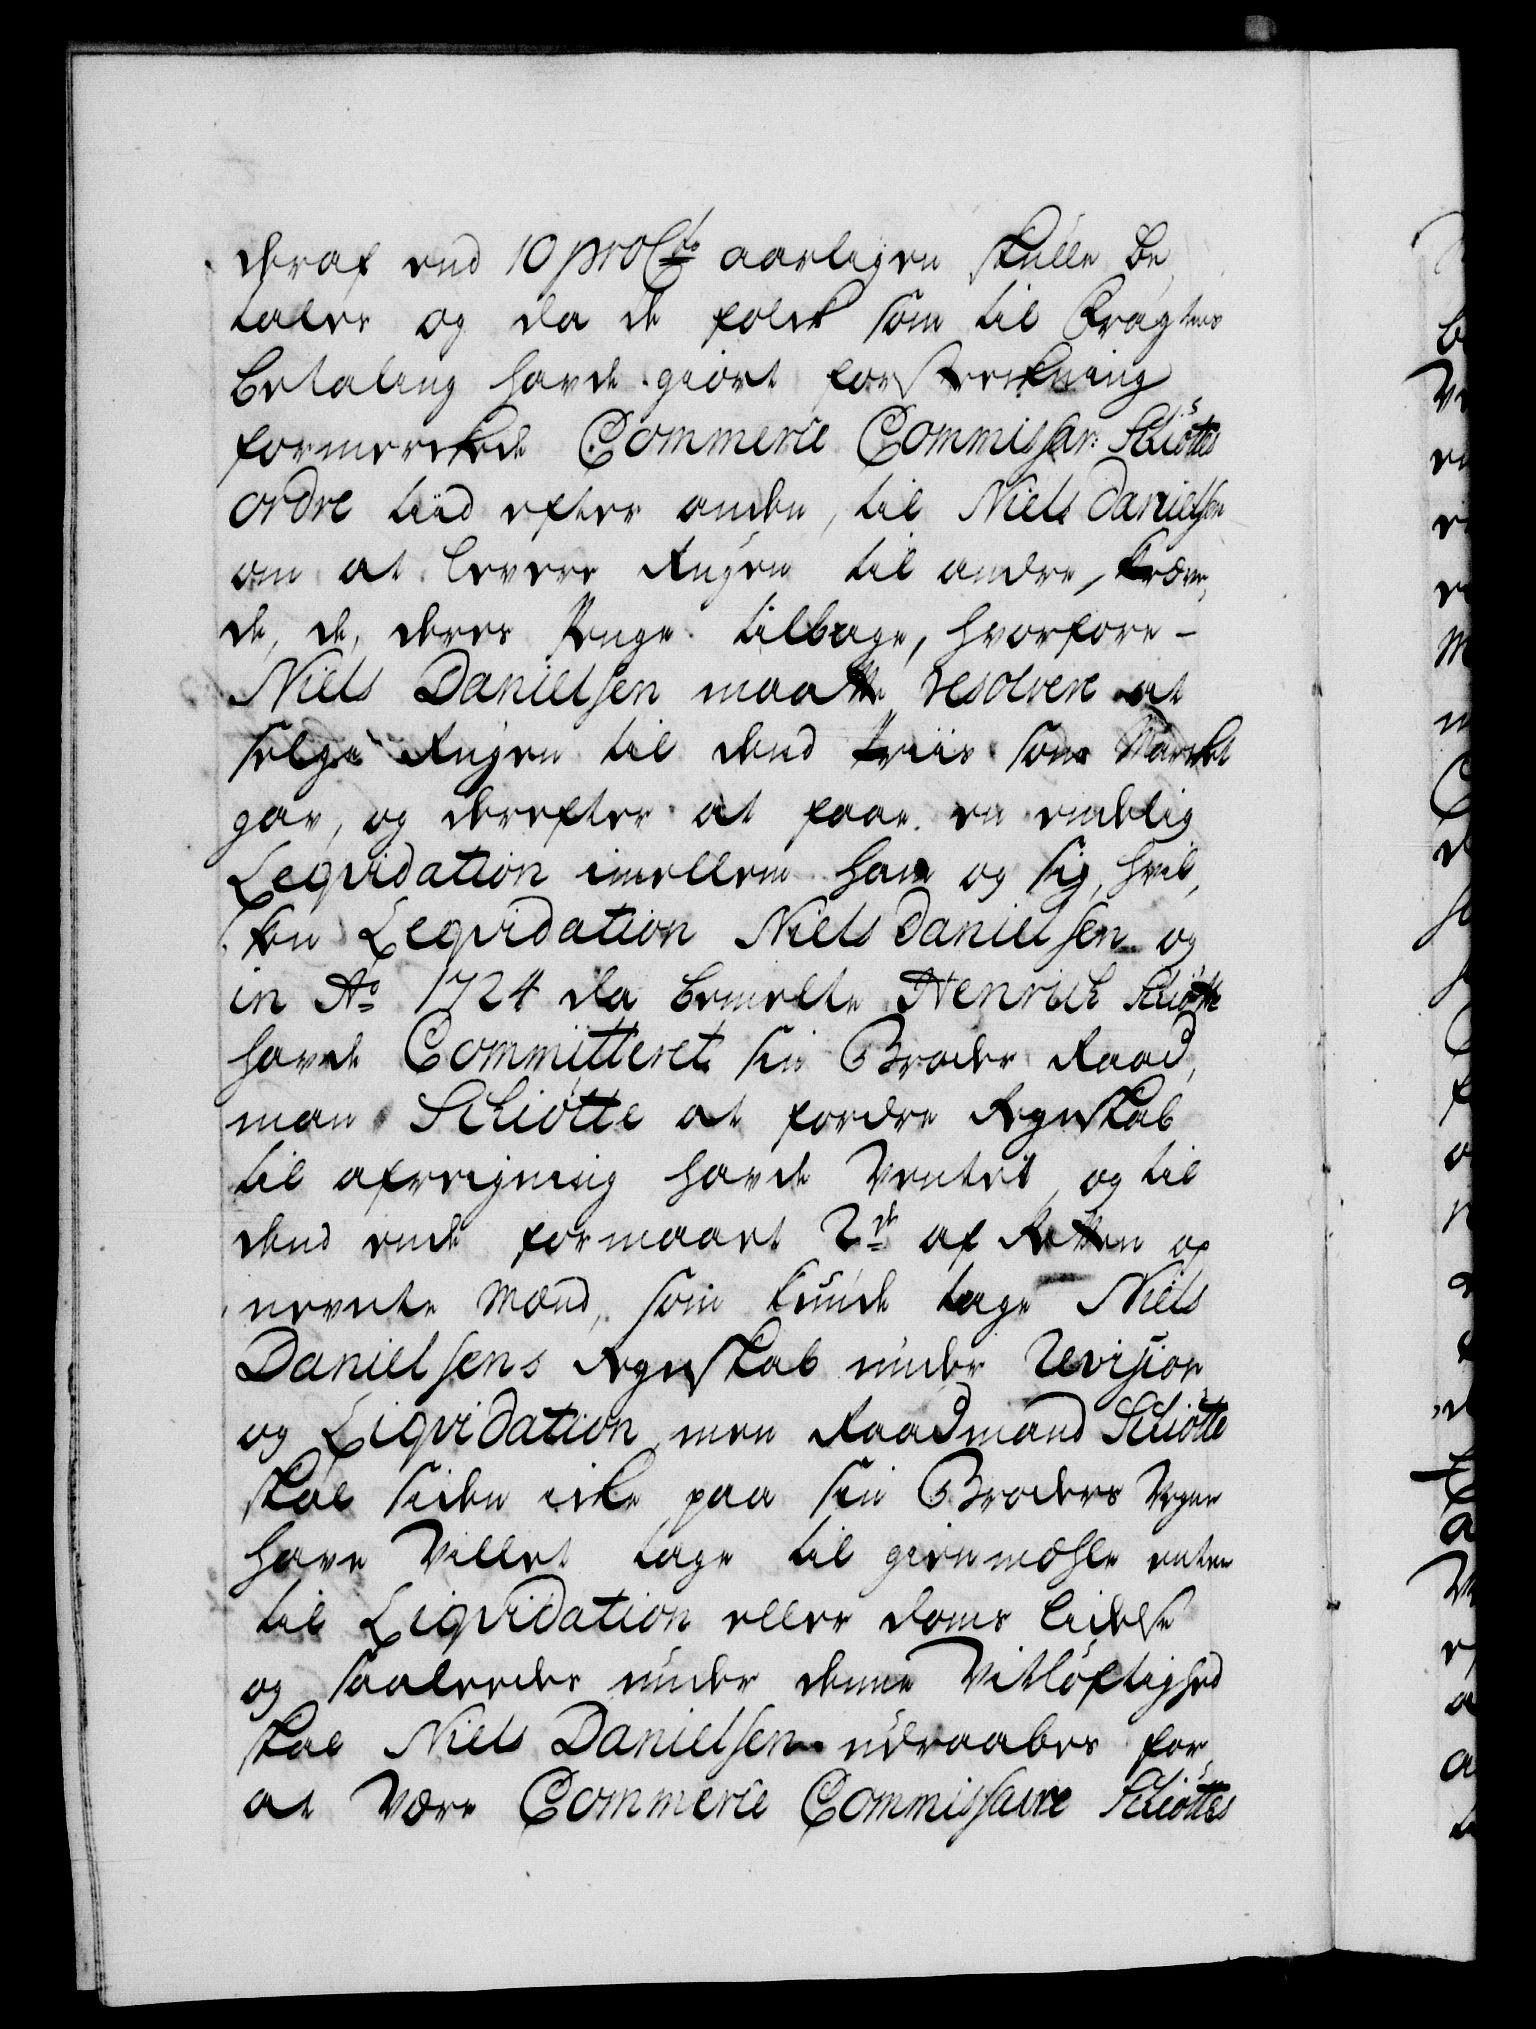 deraf end 10 proCto aarligen skulle be,
tales og da de folck som til Fragtens
betaling havde giort forstreckning
formerckede Commerce Commissar: Schiøttes
ordre tiid efter anden, til Niels Danielsen
om at levere Rugen til andre, kræve,
de, de, deres Penge tilbage, hvorfore -
Niels Danielsen maatte resolvere at
selge Rugen til dend Priis som Marcket
gav, og derefter at faae en endelig
Leqvidation imellem ham og sig, hvil,
ken Leqvidation Niels Danielsen og
in Ao 1724 da bemelte Henrich Schiøtte
havde Committeret sin Broder Raad,
man Schiøtte at fordre Regnskab
til afreigning havde Ventet, og til
dend ende formaaet 2de af Retten op
nevnte Mænd, som kunde tage Niels
Danielsens Regnskab under Revision
og Liqvidation, men Raadmand Schiøtte
skal siden icke paa sin Broders Vegne
have Villet tage til gienmæhle enten
til Liqvidation eller doms lidelse
og saaleedes under denne Vitløftighed
skal Niels Danielsen udraabes for
at være Commerce Commissaire Schiøttes